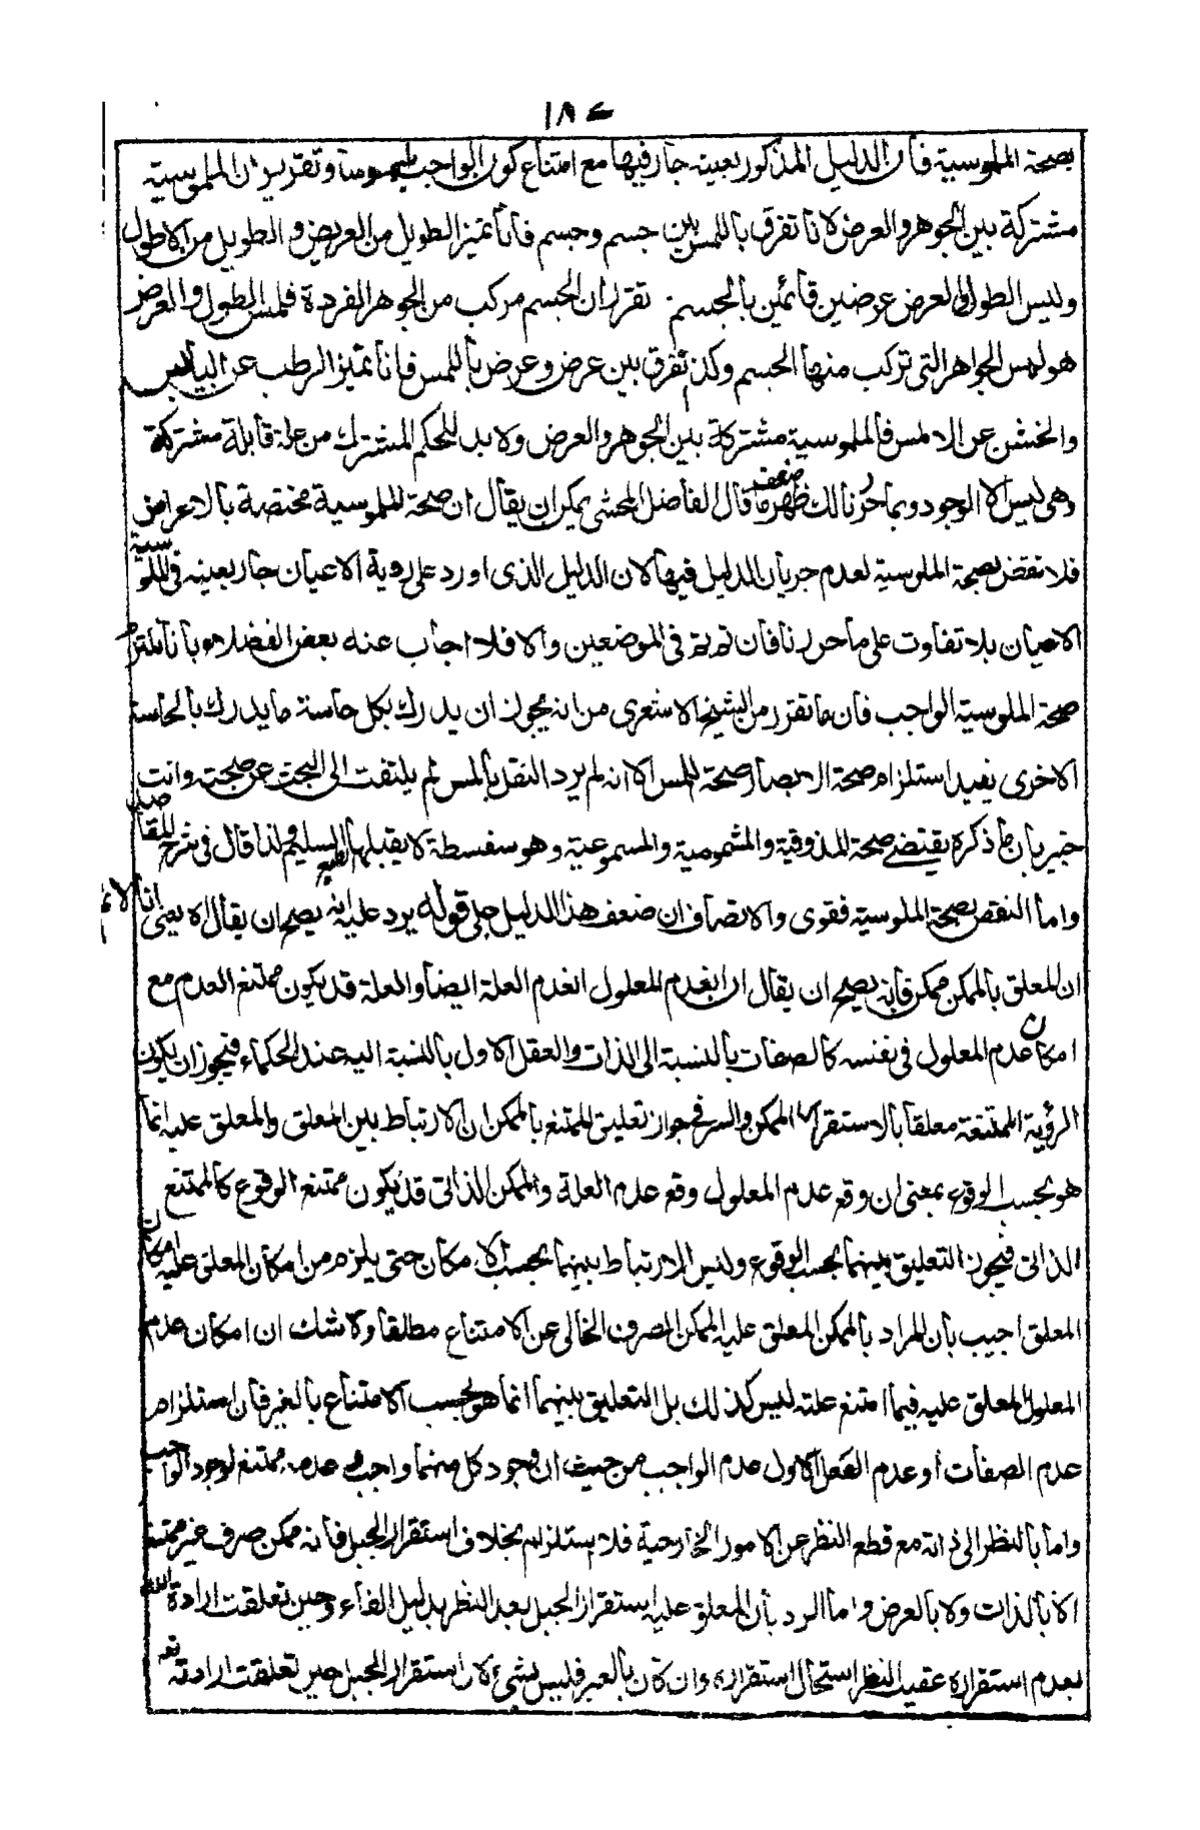 ١٨٤
بصحة الملموسية فان الدليل المذكور بعينه جار فيها مع امتناع كون الواجب ملموسا وتقريره ان الملموسية
مشتركة بين الجوهر والعرض لانا نفرق باللمس بين جسم وجسم فانا نميز الطويل من العريض والطويل من الاطول
وليس الطول والعرض عرضين قائمين بالجسم تقرر ان الجسم مركب من الجوهر الفردة فلمس الطول والعرض
هو لمس الجواهر التى تركب منها الجسم وكذا نفرق بين عرض وعرض باللمس فانا نميز الرطب عن اليابس
والخشن عن الاملس فالملموسية مشتركة بين الجوهر والعرض ولا بد للحكم المشترك من علة قابلة مشتركة
وهى ليس الا الوجود وبما حررنا لك ظهر ضعف ما قال الفاضل المحشى يمكن ان يقال ان صحة الملموسية مختصة بالاعراض
فلا نقض بصحة الملموسية لعدم جريان الدليل فيها لان الدليل الذى اورد على روية الاعيان جار بعينه فى الملموسية
الاعيان بلا تفاوت على ما حررنا فان تم تم فى الموضعين والا فلا اجاب عنه بعض الفضلاء بانا نلتزم
صحة الملموسية الواجب فان ما تقرر من الشيخ الاشعرى من انه يجوز ان يدرك بكل حاسة ما يدرك بالحاسة
الاخرى يفيد استلزام صحة الابصار صحة اللمس الا انه لم يرد النقل باللمس لم يلتفت الى البحث عن صحته وانت
خبير بان ما ذكره يقتضى صحة المذوقية والمشمومية والمسموعية وهو سفسطة لا يقبلها الطبع السليم ولذا قال فى شرح المقاصد
واما النقض بصحة الملموسية فقوى والانصاف ان ضعف هذا الدليل جلى قوله يرد عليه انه يصح ان يقال لا يعنى انا لا نم
ان المعلق بالممكن ممكن فانه يصح ان يقال ان انعدم المعلول انعدم العلة ايضا والعلة قد يكون ممتنع العدم مع
امكان عدم المعلول فى نفسه كالصفات بالنسبة الى الذات والعقل الاول بالنسبة اليه عند الحكماء فيجوز ان يكون
الرؤية الممتنعة معلقا بالاستقرار الممكن والسر فى جواز تعليق الممتنع بالممكن ان الارتباط بين المعلق والمعلق عليه انما
هو بحسب الوقوع بمعنى ان وقع عدم المعلول وقع عدم العلة والممكن الذاتى قد يكون ممتنع الوقوع كالممتنع
الذاتى فيجوز التعليق بينهما بحسب الوقوع وليس الارتباط بينهما بحسب الامكان حتى يلزم من امكان المعلق عليه امكان
المعلق اجيب بان المراد بالممكن المعلق عليه الممكن الصرف الخالى عن الامتناع مطلقا ولا شك ان امكان عدم
المعلول المعلق عليه فيما امتنع علته ليس كذلك بل التعليق بينهما انما هو بحسب الامتناع بالغير فان استلزام
عدم الصفات او عدم العقل الاول عدم الواجب من حيث ان وجود كل منهما واجب وعدمه ممتنع لوجود الواجب
واما بالنظر الى ذاته مع قطع النظر عن الامور الخارجية فلا يستلزم بخلاف استقرار الجبل فانه ممكن صرف غير ممتنع
لا بالذات ولا بالعرض واما الرد بان المعلق عليه استقرار الجبل بعد النظر بدليل الفاء وحين تعلقت ارادة الله
بعدم استقراره عقيب النظر استحال استقراره وان كان بالغير فليس بشئ لان استقرار الجبل حين تعلقت ارادته تعه